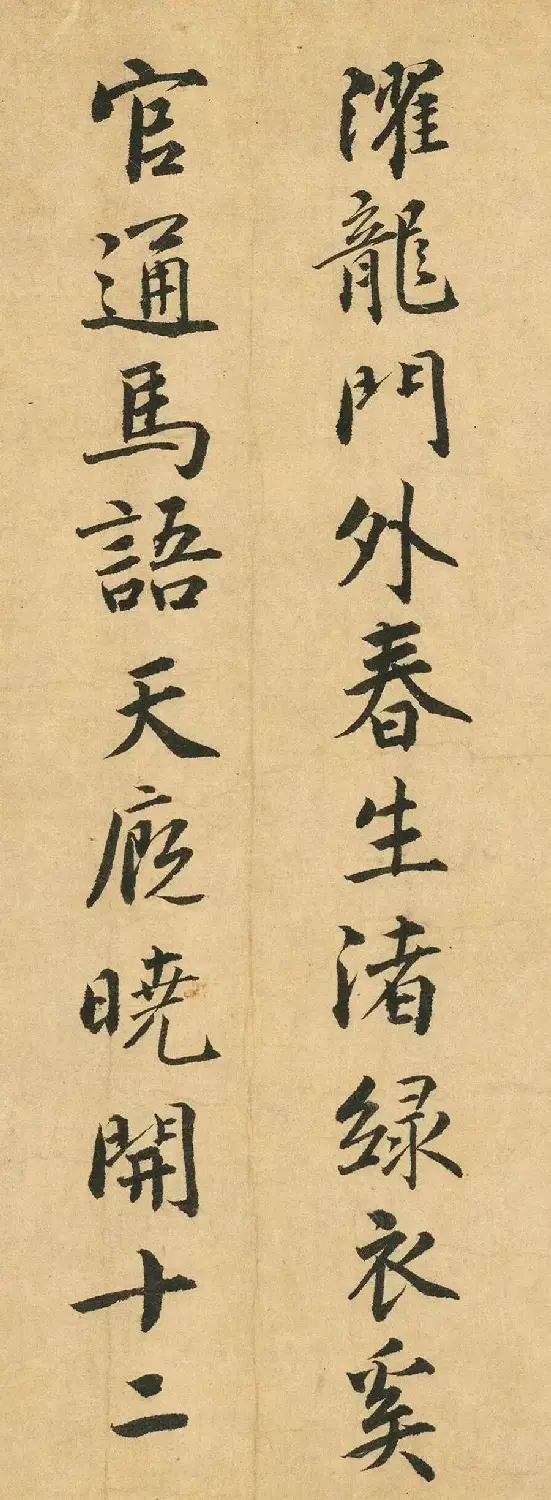 濯龍門外春生渚綠衣奚
官通馬語天廄曉開十二